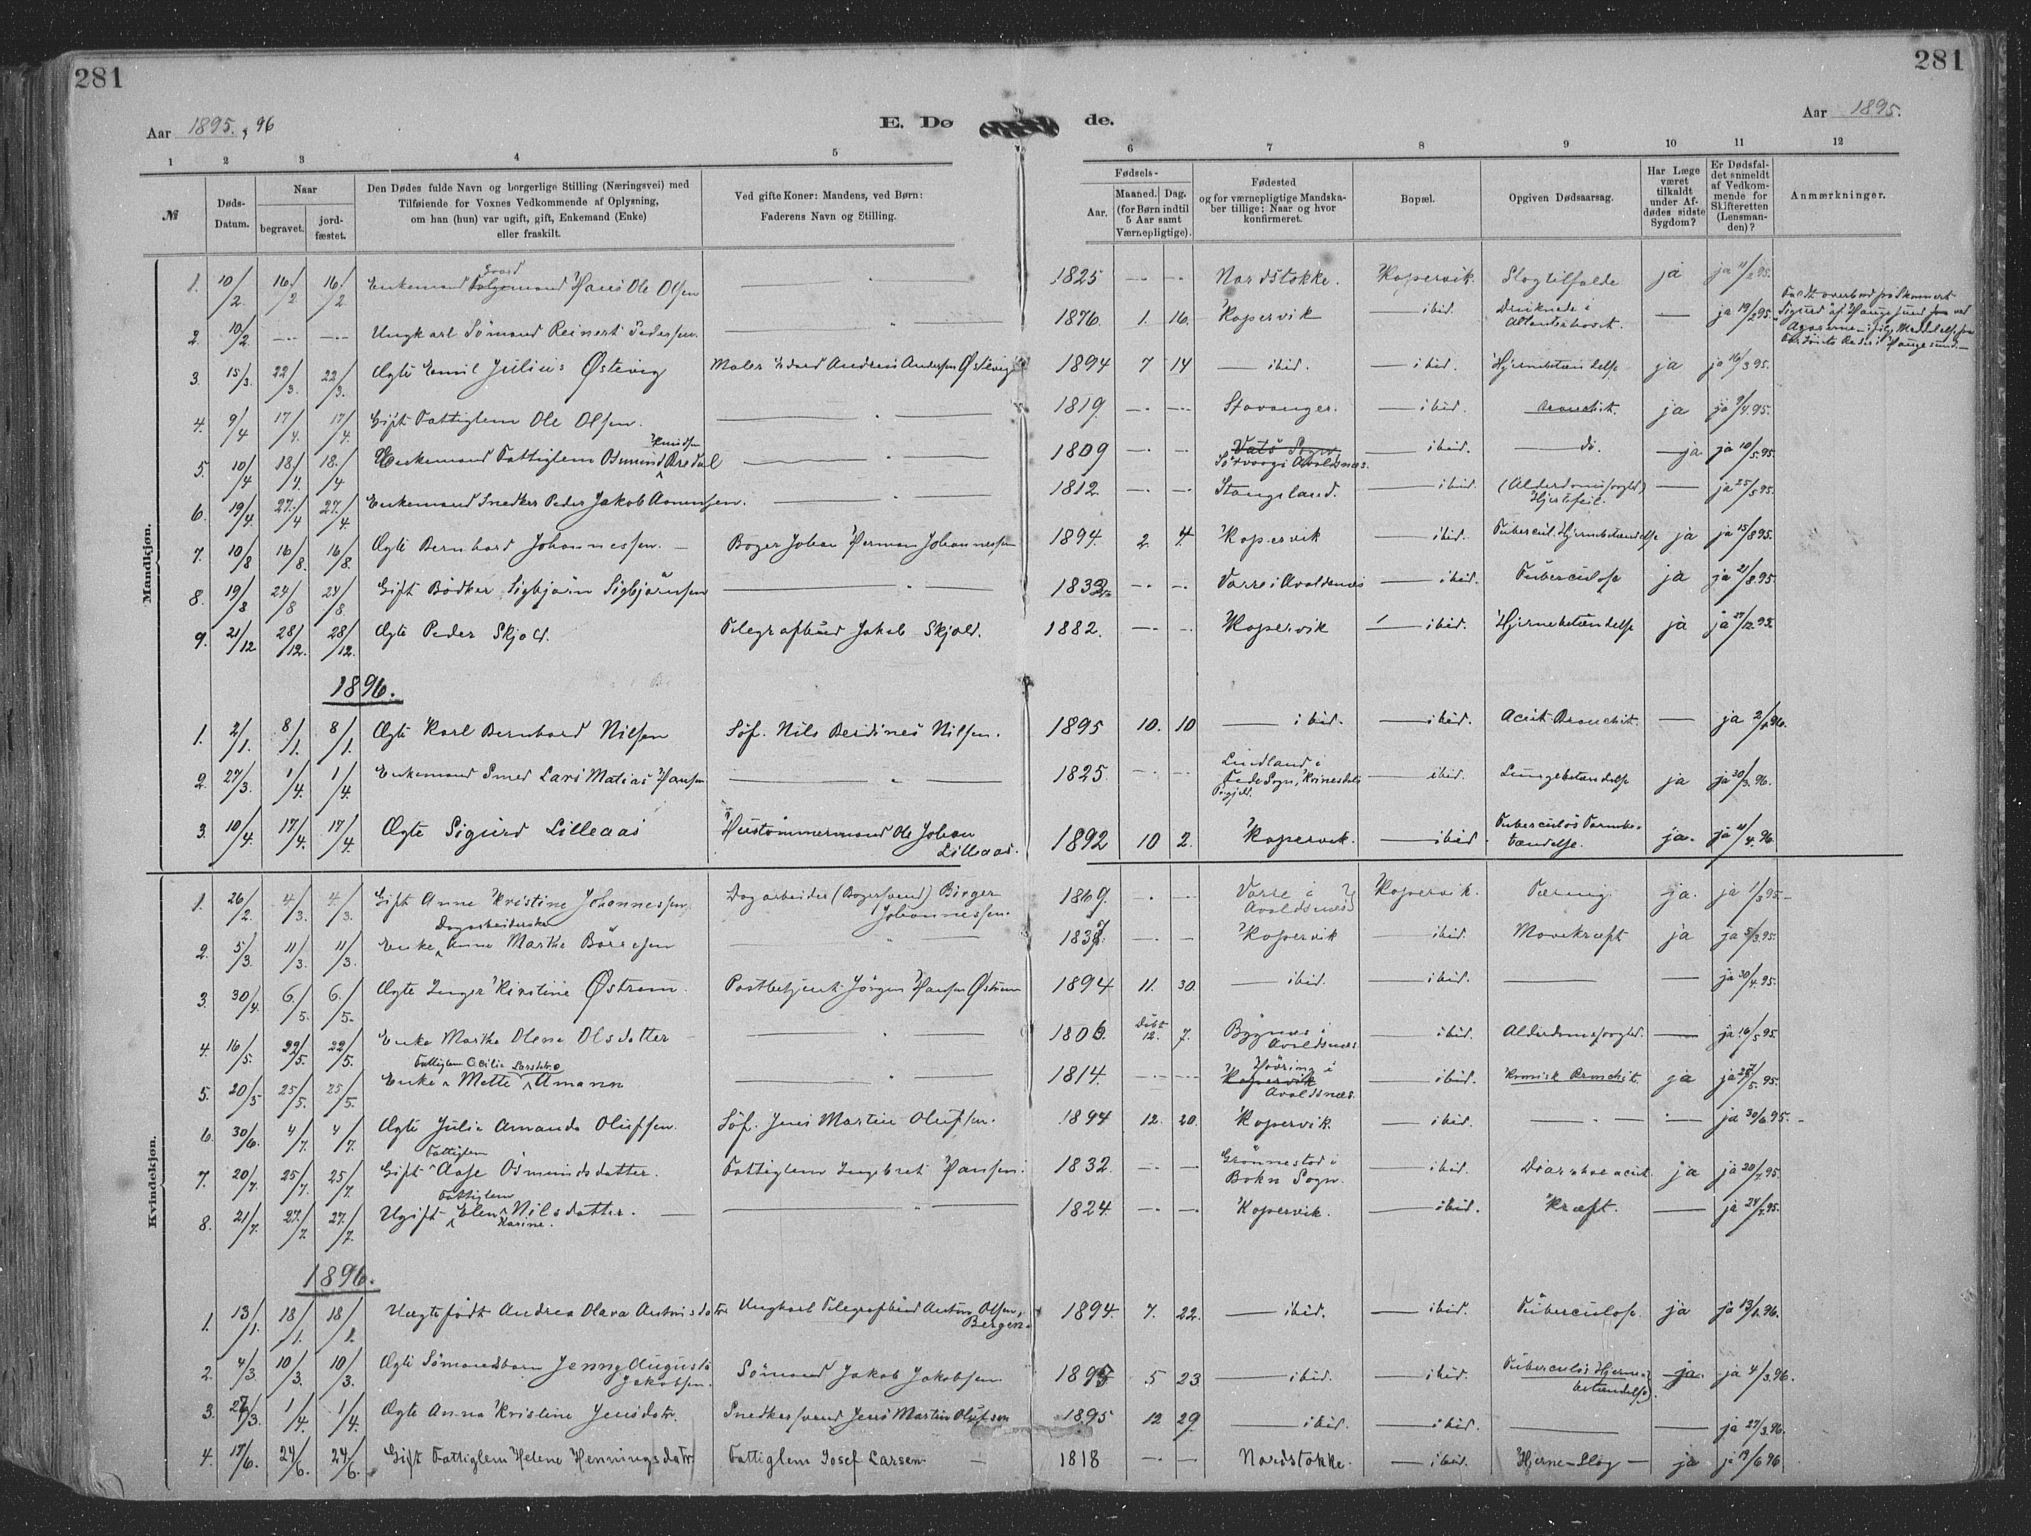 281
281
Aar 1895, 96
E. Dø de.
Aar 1895.
1 2 3 4 5 6 7 8 9 10 11 12
№
Døds-Datum.
Naar
begravet.
jord-fæstet.
Den Dødes fulde Navn og borgerlige Stilling (Næringsvei) med
Tilføiende for Voxnes Vedkommende af Oplysning,
om han (hun) var ugift, gift, Enkemand (Enke)
eller fraskilt.
Ved gifte Koner: Mandens, ved Børn:
Faderens Navn og Stilling.
Fødsels-
Aar.
Maaned. Dag.
(for Børn indtil
5 Aar samt
Værnepligtige).
Fødested
og for værnepligtige Mandska-
ber tillige: Naar og hvor
konfirmeret.
Bopæl.
Opgiven Dødsaarsag.
Har Læge
været
tilkaldt
under Af-
dødes sidste
Sygdom?
Er Dødsfal-
det anmeldt
af Vedkom-
mende for
Skifteretten
(Lensman-
den)?
Anmærkninger.
Mandkjøn.
1. 10/2 16/2 16/2 Enkemand Gaardmand Hans Ole Olsen — " 1825 — — Nordstokke. Kopervik. Slagtilfælde ja ja 11/2 95.
2. 10/2 — — Ungkarl Sømand Reinert Pedersen — " 1876 1. 16. Kopervik — ibid. Druknede i Atlanterhavet. — ja 19/2 95
3. 15/3. 22/3 22/3. Ægte Emil Julius Østevig Maler Edvard Andreas Andersen Østevig 1894 7 14 — ibid. — ibid. Hjernebetændelse ja ja 16/3 95.
4. 9/4 17/4. 17/4. Gift Fattiglem Ole Olsen. — " 1819 — — Stavanger. — ibid. Bronchit. ja ja 9/4. 95.
5. 10/4 18/4. 18/4 Enkemand Fattiglem Osmund Knudsen Bredal — " 1809 — — Vats Sogn Sørvaag i Avaldsnes. — ibid. — do — ja ja 10/5. 95
6. 19/4. 27/4 27/4. Enkemand Snedker Peder Jakob Amensen. — " 1812. — — Stangeland. — ibid. (Alderdomssvaghed) Hjertefeil. — ja 25/5 95.
7. 10/8 16/8. 16/8. Ægte Bernhard Johannessen. — Bager Johan Herman Johannessen 1894. 2. 4. Kopervik — ibid. Tubercul. Hjernebetændelse ja ja 15/8 95.
8. 19/8 24/8 24/8. Gift Bødker Sigbjørn Sigbjørnsen — " 1832 — — Varre i Avaldsnes — ibid. Tuberculose ja ja 21/8. 95.
9. 21/12 28/12. 28/12. Ægte Peder Skjold. Telegrafbud Jakob Skjold. 1882. — — Kopervik — ibid. Hjernebetændelse ja ja 27/12. 95
1896.
1. 2/1. 8/1. 8/1. Ægte Karl Bernhard Nilsen Søf. Nils Berdines Nilsen. 1895 10. 10 — ibid. — ibid. Acut Bronchit. — ja 2/1 96.
2. 27/3. 1/4. 1/4. Enkemand Smed Lars Matias Hansen — " 1825. — — Lindland i Fede Sogn, Kvinesdals Prgjld. — ibid. Lungebetændelse ja ja 30/3. 96.
3. 10/4. 17/4. 17/4. Ægte Sigurd Lilleaas Hustømmermand Ole Johan Lilleaas. 1892 10 2. Kopervik. — ibid. Tuberculøs Tarmbetændelse. ja. ja 11/4. 96.
Kvindekjøn.
1. 26/2. 4/3. 4/3. Gift Anne Kristine Johannessen, Dagarbeider (Bagersvend) Birger Johannessen. 1869. — — Varre i Avaldsnes Kopervik. Tæring. ja. ja 1/3 95. —
2. 5/3. 11/3. 11/3. Enke Dagarbeiderske Anne Marthe Børresen — " 1837. — — Kopervik — ibid. Mavekræft ja ja 5/3. 95.
3. 30/4. 6/5. 6/5. Ægte Inger Kirstine Østrem. Postbetjent Jørgen Hansen Østrem 1894 11. 30. — ibid. — ibid. — — ja 30/4. 95.
4. 16/5. 22/5. 22/5. Enke Marthe Olena Olsdatter — " 1806. Døbt 12. 7. Bygnes i Avaldsnes — ibid. Alderdomssvaghed. — ja 16/5 95
5. 20/5 25/5. 25/5. Enke Fattiglem Cecilie Mette Larsdtr. Amann — " 1814. — — Kopervik Høvring i Avaldsnes. — ibid. Kronisk Bronchit. ja ja 25/5. 95.
6. 30/6. 4/7. 4/7. Ægte Julie Amanda Olufsen. Søf. Jens Martin Olufsen. 1894 12. 20. Kopervik. — ibid. — — ja 30/6. 95. —
7. 20/7 25/7. 25/7. Gift Fattiglem Aase Osmundsdatter. Fattiglem Ingbret Hansen. 1832. — — Grønnestad i Bokn Sogn. — ibid. Diarrhoe acut. ja ja 20/7. 95.
8. 21/7. 27/7. 27/7. Ugift Fattiglem Elen Karine Nilsdatter. — — " 1824. — — Kopervik. — ibid. Kræft. — ja 24/7. 95.
1896.
1. 13/1. 18/1. 18/1. Uægtefødt Andrea Olava Antonsdatr Ungkarl Telegrafbud Anton Olsen, Bergen. 1894. 7. 22. — ibid. — ibid. Tuberculose. ja ja 13/1. 96.
2. 4/3. 10/3. 10/3. Ægte Sømandsbarn Jenny Augusta Jakobsen. Sømand Jakob Jakobsen 1895 5 23 — ibid. — ibid. Tuberculøs Hjernebetændelse ja. ja 4/3. 96.
3. 26/3. 1/4. 1/4. Ægte Anna Kristine Jensdtr. Snedkersvend Jens Martin Olufsen 1895 12 29. — ibid. — ibid. — — ja 27/3. 96.
4. 17/6. 24/6. 24/6. Gift Fattiglem Helene Henningsdatr Fattiglem Josef Larsen — 1818 — — Nordstokke. — ibid. Hjerne-Slag — ja ja 19/6 96